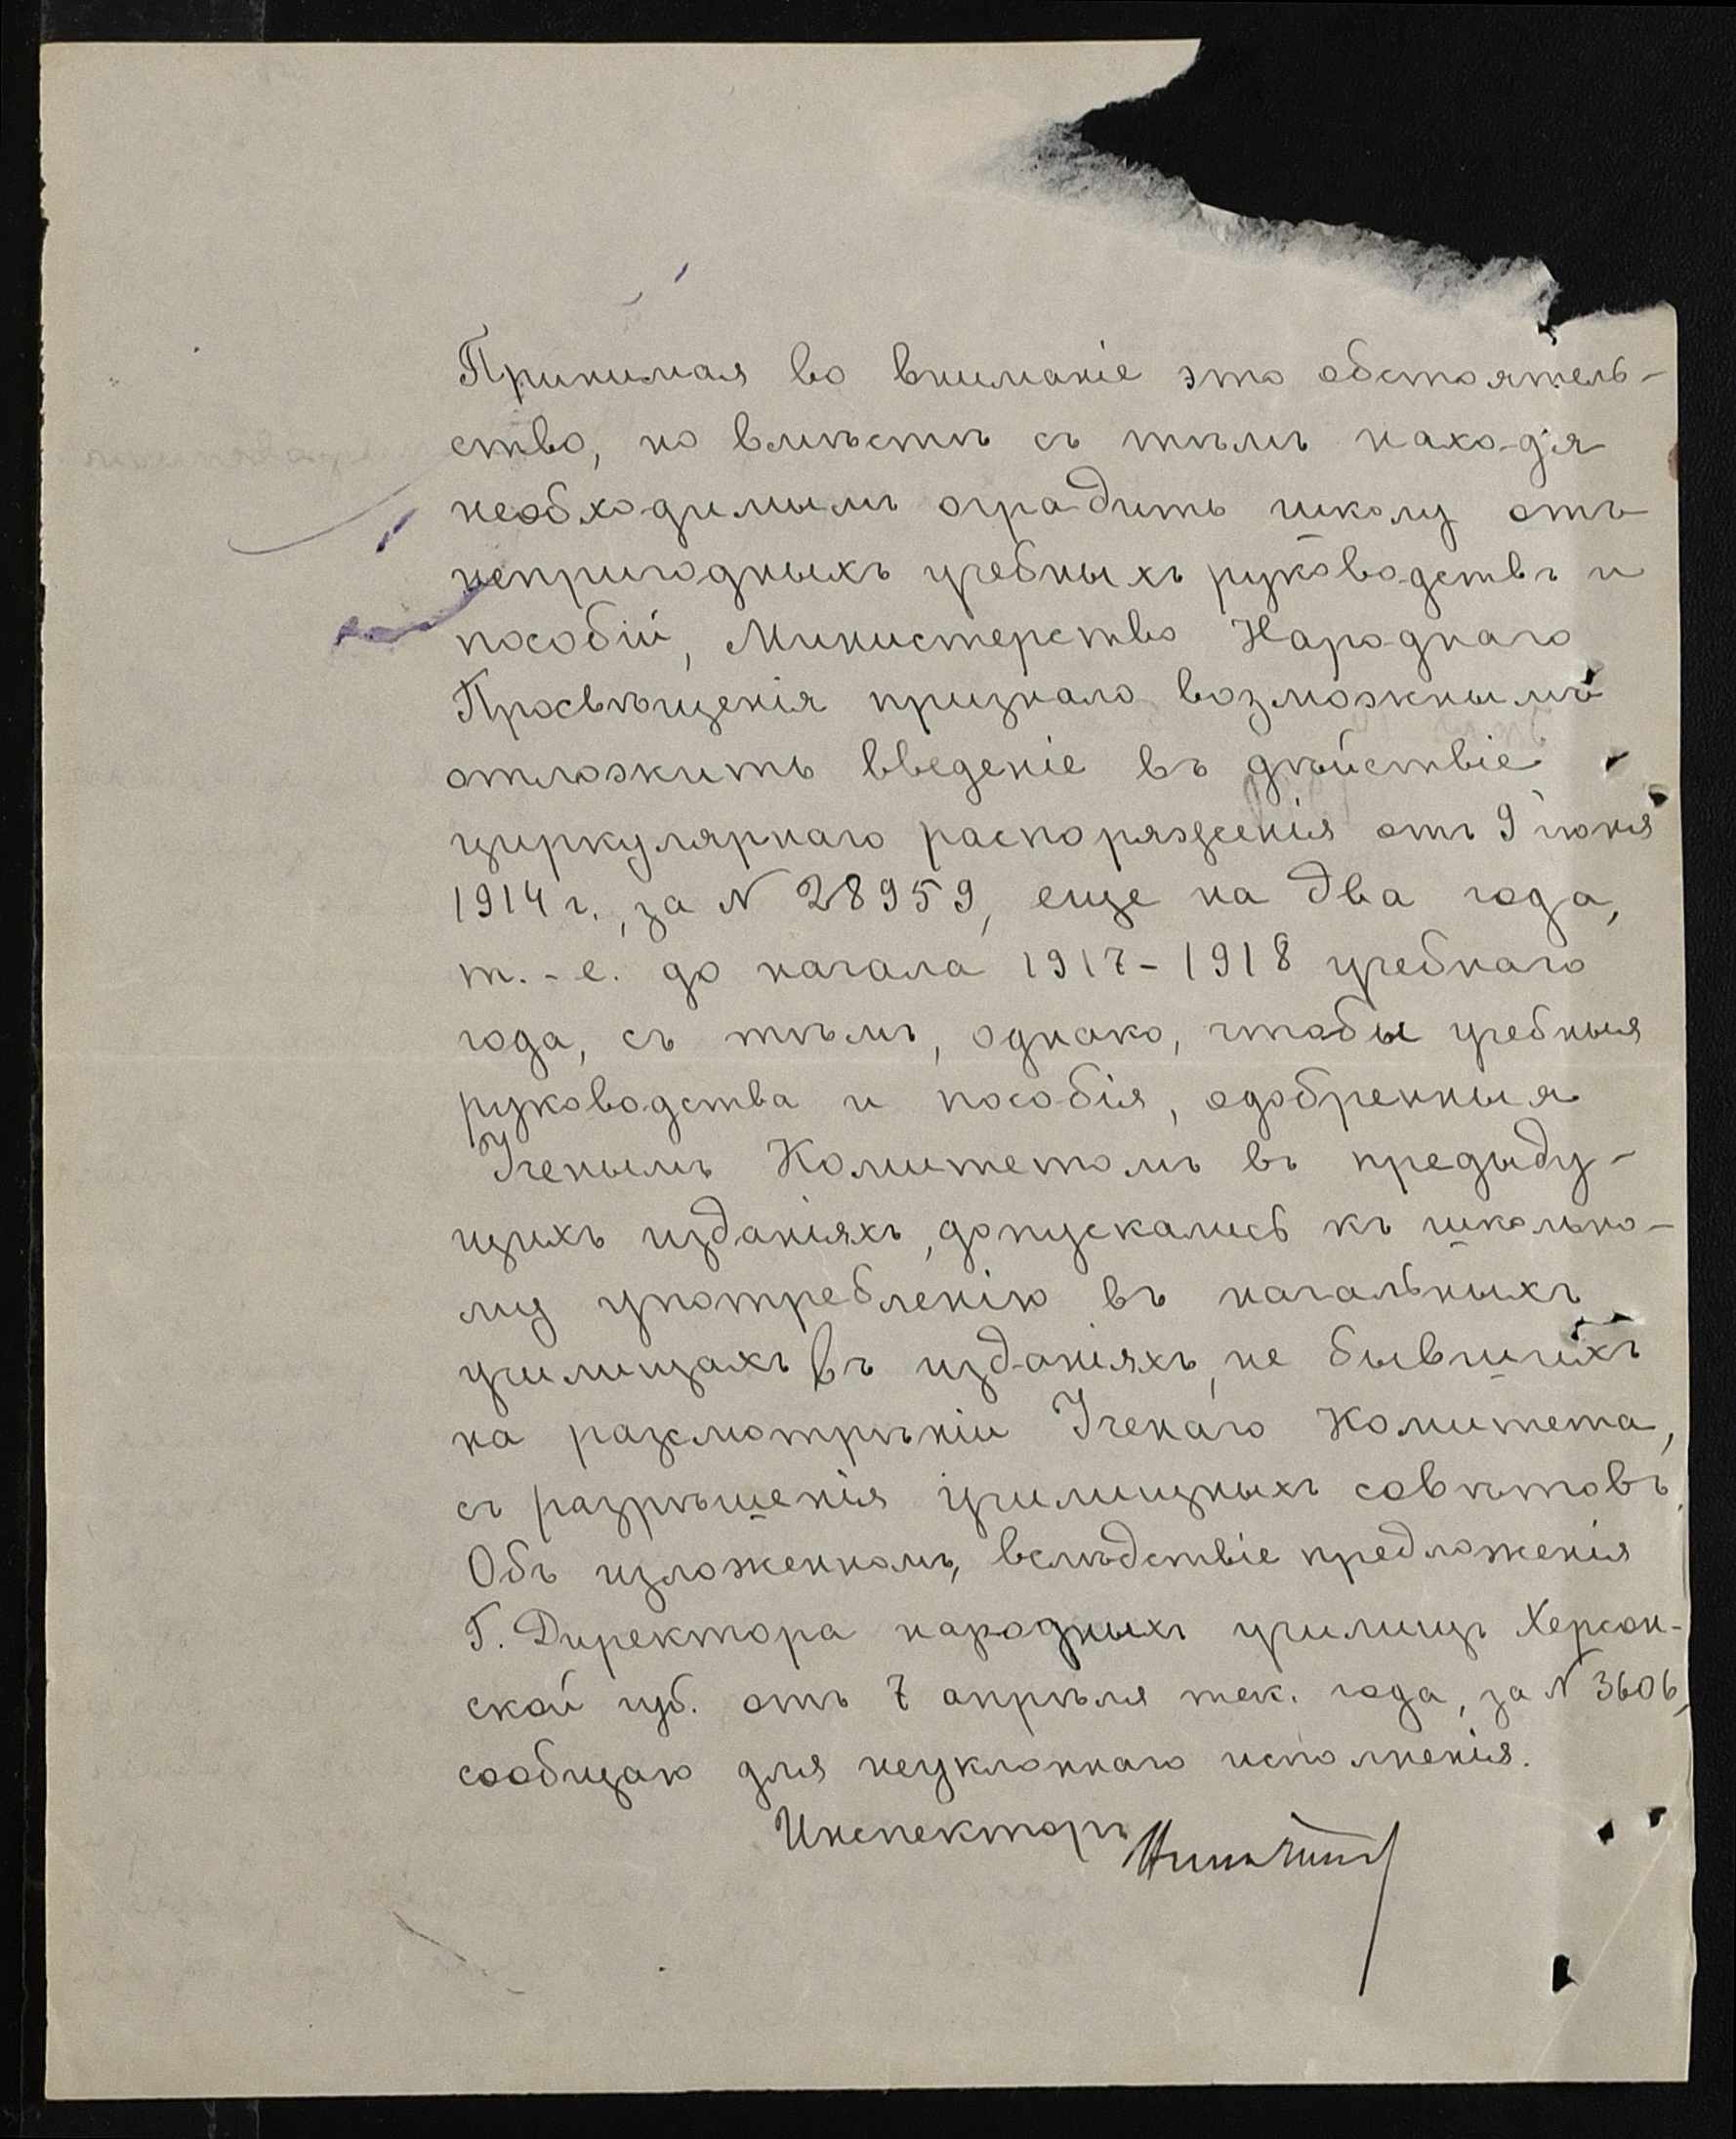 Принимая во вниманіе это обстоятель-
ство, но вмѣстѣ съ тѣмъ находя
необходимымъ оградить школу отъ
непригодныхъ учебныхъ руководствъ и
пособій, Министерство Народнаго
Просвѣщенія признало возможнымъ
отложить введеніе въ дѣйствіе
циркулярнаго распоряженія отъ 9 іюня
1914 г., за N 28959, еще на два года,
т.-е. до начала 1917-1918 учебнаго
года, съ тѣмъ, однако, чтобы учебныя
руководства и пособія, одобренныя
Ученымъ Комитетомъ въ предыду-
щихъ изданіяхъ, допускались къ школьно-
му употребленію въ начальныхъ
училищахъ въ изданіяхъ, не бывшихъ
на разсмотрѣніи Ученаго Комитета,
съ разрѣшенія училищныхъ совѣтовъ.
Объ изложенномъ, вслѣдствіе предложенія
Г. Директора народныхъ училищъ Херсон-
ской губ. отъ 7 апрѣля тек. года, за N 3606,
сообщаю для неуклоннаго исполненія.
Инспекторъ